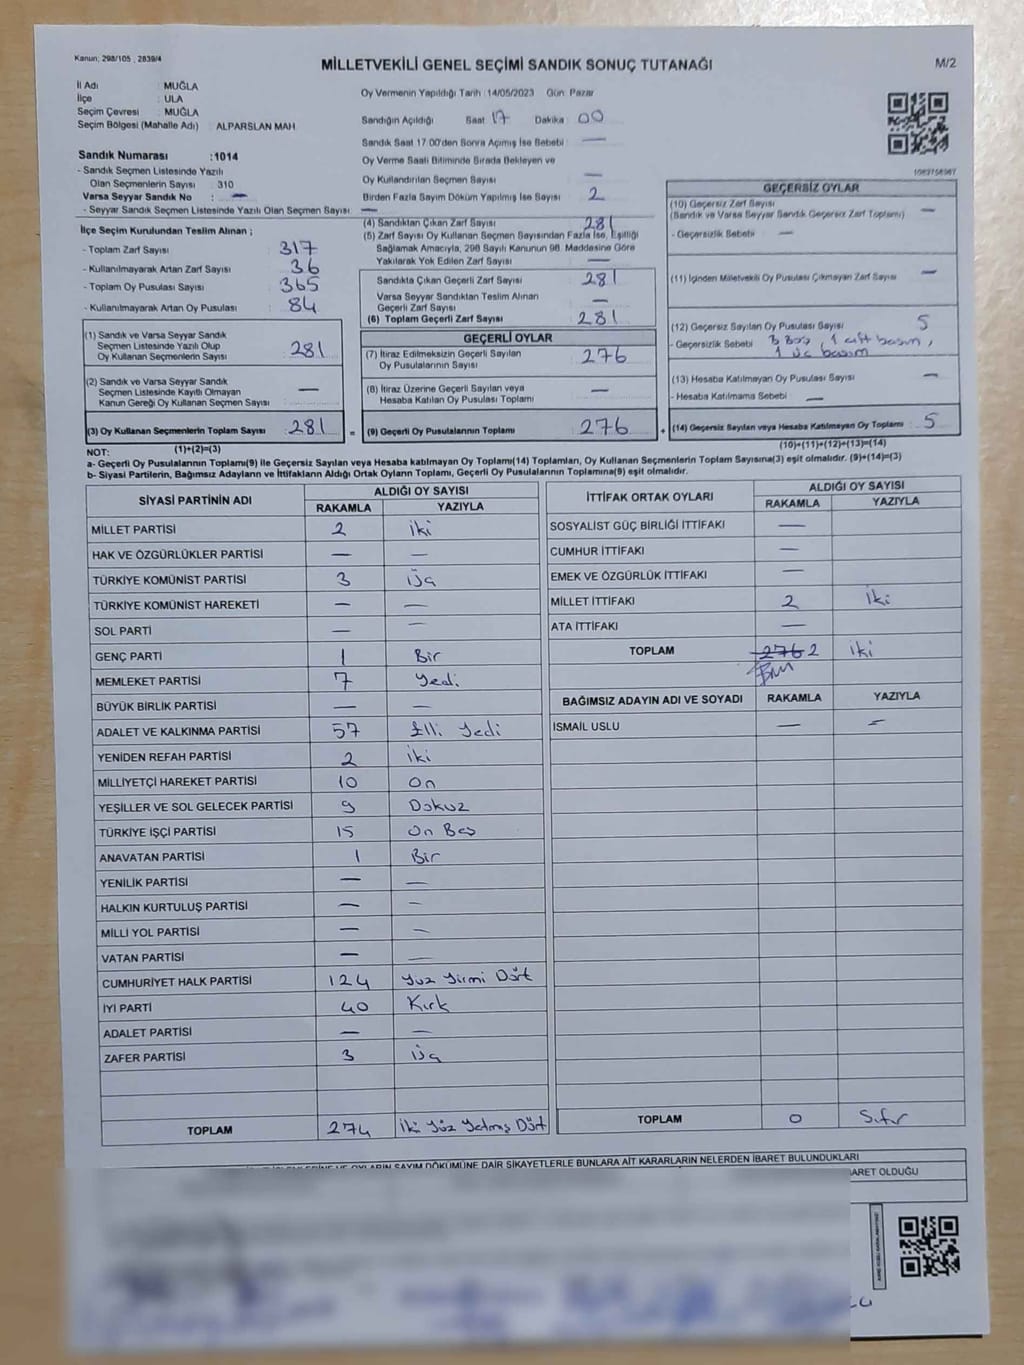 Kanun; 298/105 , 2839/4
MİLLETVEKİLİ GENEL SEÇİMİ SANDIK SONUÇ TUTANAĞI
M/2
İl Adı : MUĞLA
İlçe : ULA
Seçim Çevresi : MUĞLA
Seçim Bölgesi (Mahalle Adı) : ALPARSLAN MAH
Oy Vermenin Yapıldığı Tarih :14/05/2023 Gün: Pazar
Sandığın Açıldığı Saat 17 Dakika : 00
Sandık Saat 17.00'den Sonra Açılmış İse Sebebi : —
Oy Verme Saati Bitiminde Sırada Bekleyen ve
Oy Kullandırılan Seçmen Sayısı : —
Birden Fazla Sayım Döküm Yapılmış İse Sayısı : 2
Sandık Numarası :1014
- Sandık Seçmen Listesinde Yazılı
Olan Seçmenlerin Sayısı : 310
Varsa Seyyar Sandık No : —
- Seyyar Sandık Seçmen Listesinde Yazılı Olan Seçmen Sayısı : —
İlçe Seçim Kurulundan Teslim Alınan ;
- Toplam Zarf Sayısı : 317
- Kullanılmayarak Artan Zarf Sayısı : 36
- Toplam Oy Pusulası Sayısı : 365
- Kullanılmayarak Artan Oy Pusulası : 84
(1) Sandık ve Varsa Seyyar Sandık
Seçmen Listesinde Yazılı Olup
Oy Kullanan Seçmenlerin Sayısı : 281
(2) Sandık ve Varsa Seyyar Sandık
Seçmen Listesinde Kayıtlı Olmayan
Kanun Gereği Oy Kullanan Seçmen Sayısı : —
(3) Oy Kullanan Seçmenlerin Toplam Sayısı : 281
(1)+(2)=(3)
(4) Sandıktan Çıkan Zarf Sayısı : 281
(5) Zarf Sayısı Oy Kullanan Seçmen Sayısından Fazla İse, Eşitliği
Sağlamak Amacıyla, 298 Sayılı Kanunun 98. Maddesine Göre
Yakılarak Yok Edilen Zarf Sayısı : —
Sandıkta Çıkan Geçerli Zarf Sayısı : 281
Varsa Seyyar Sandıktan Teslim Alınan
Geçerli Zarf Sayısı : —
(6) Toplam Geçerli Zarf Sayısı : 281
GEÇERLİ OYLAR
(7) İtiraz Edilmeksizin Geçerli Sayılan
Oy Pusulalarının Sayısı : 276
(8) İtiraz Üzerine Geçerli Sayılan veya
Hesaba Katılan Oy Pusulası Toplamı : —
= (9) Geçerli Oy Pusulalarının Toplamı : 276 +
GEÇERSİZ OYLAR
(10) Geçersiz Zarf Sayısı
(Sandık ve Varsa Seyyar Sandık Geçersiz Zarf Toplamı) : —
- Geçersizlik Sebebi : —
(11) İçinden Milletvekili Oy Pusulası Çıkmayan Zarf Sayısı : —
(12) Geçersiz Sayılan Oy Pusulası Sayısı : 5
- Geçersizlik Sebebi : 3 Boş , 1 çift basım ,
1 üç basım
(13) Hesaba Katılmayan Oy Pusulası Sayısı : —
- Hesaba Katılmama Sebebi : —
(14) Geçersiz Sayılan veya Hesaba Katılmayan Oy Toplamı : 5
(10)+(11)+(12)+(13)=(14)
NOT:
a- Geçerli Oy Pusulalarının Toplamı(9) ile Geçersiz Sayılan veya Hesaba katılmayan Oy Toplamı(14) Toplamları, Oy Kullanan Seçmenlerin Toplam Sayısına(3) eşit olmalıdır. (9)+(14)=(3)
b- Siyasi Partilerin, Bağımsız Adayların ve İttifakların Aldığı Ortak Oyların Toplamı, Geçerli Oy Pusulalarının Toplamına(9) eşit olmalıdır.
SİYASİ PARTİNİN ADI ALDIĞI OY SAYISI
RAKAMLA YAZIYLA
MİLLET PARTİSİ 2 İki
HAK VE ÖZGÜRLÜKLER PARTİSİ — —
TÜRKİYE KOMÜNİST PARTİSİ 3 Üç
TÜRKİYE KOMÜNİST HAREKETİ — —
SOL PARTİ — —
GENÇ PARTİ 1 Bir
MEMLEKET PARTİSİ 7 Yedi
BÜYÜK BİRLİK PARTİSİ — —
ADALET VE KALKINMA PARTİSİ 57 Elli Yedi
YENİDEN REFAH PARTİSİ 2 İki
MİLLİYETÇİ HAREKET PARTİSİ 10 On
YEŞİLLER VE SOL GELECEK PARTİSİ 9 Dokuz
TÜRKİYE İŞÇİ PARTİSİ 15 On Beş
ANAVATAN PARTİSİ 1 Bir
YENİLİK PARTİSİ — —
HALKIN KURTULUŞ PARTİSİ — —
MİLLİ YOL PARTİSİ — —
VATAN PARTİSİ — —
CUMHURİYET HALK PARTİSİ 124 Yüz Yirmi Dört
İYİ PARTİ 40 Kırk
ADALET PARTİSİ — —
ZAFER PARTİSİ 3 Üç
TOPLAM 274 İki Yüz Yetmiş Dört
İTTİFAK ORTAK OYLARI ALDIĞI OY SAYISI
RAKAMLA YAZIYLA
SOSYALİST GÜÇ BİRLİĞİ İTTİFAKI —
CUMHUR İTTİFAKI —
EMEK VE ÖZGÜRLÜK İTTİFAKI —
MİLLET İTTİFAKI 2 İki
ATA İTTİFAKI —
TOPLAM 276 2 İki
BAĞIMSIZ ADAYIN ADI VE SOYADI RAKAMLA YAZIYLA
İSMAİL USLU — —
TOPLAM 0 Sıfır
OYLARIN SAYIM DÖKÜMÜNE DAİR ŞİKAYETLERLE BUNLARA AİT KARARLARIN NELERDEN İBARET BULUNDUKLARI
BARET OLDUĞU